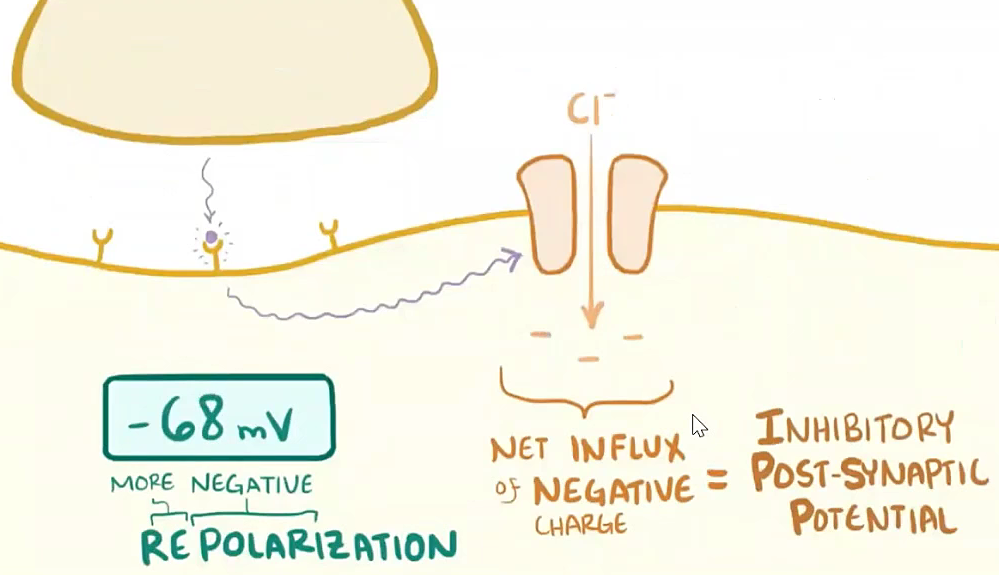 Cl⁻
-68 mV
MORE NEGATIVE
REPOLARIZATION
NET INFLUX
of NEGATIVE
CHARGE
=
INHIBITORY
POST-SYNAPTIC
POTENTIAL